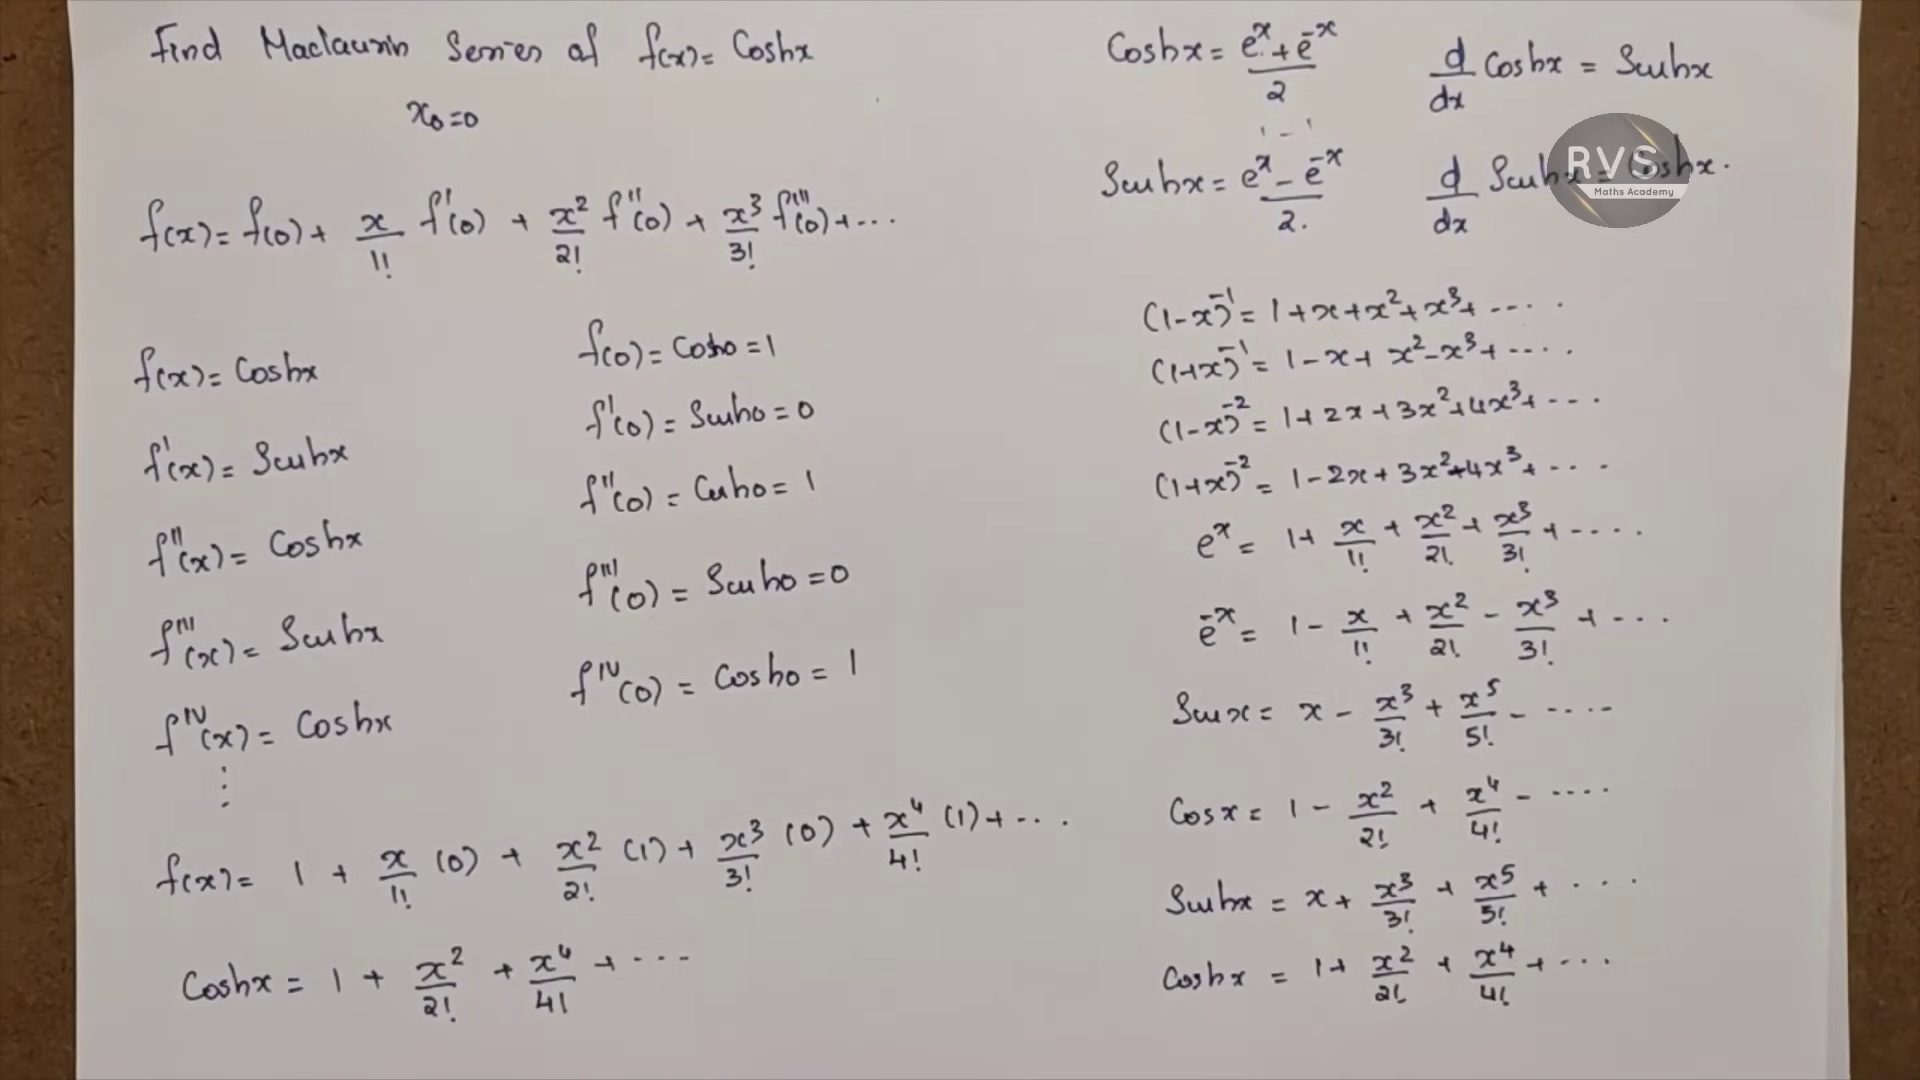 Find Maclaurin Series of f(x) = Coshx
x₀ = 0
f(x) = f(0) + x/1! f'(0) + x²/2! f''(0) + x³/3! f'''(0) + ...
f(x) = Coshx
f'(x) = Sinhx
f''(x) = Coshx
f'''(x) = Sinhx
f^IV(x) = Coshx
⋮
f(0) = Cosh0 = 1
f'(0) = Sinh0 = 0
f''(0) = Cosh0 = 1
f'''(0) = Sinh0 = 0
f^IV(0) = Cosh0 = 1
f(x) = 1 + x/1! (0) + x²/2! (1) + x³/3! (0) + x⁴/4! (1) + ...
Coshx = 1 + x²/2! + x⁴/4! + ...
Coshx = (e^x + e^-x)/2
d/dx Coshx = Sinhx
1 - 1
Sinhx = (e^x - e^-x)/2.
d/dx Sinhx = Coshx.
RVS
Maths Academy
(1-x)^-1 = 1 + x + x² + x³ + ....
(1+x)^-1 = 1 - x + x² - x³ + ....
(1-x)^-2 = 1 + 2x + 3x² + 4x³ + ...
(1+x)^-2 = 1 - 2x + 3x² - 4x³ + ...
e^x = 1 + x/1! + x²/2! + x³/3! + ....
e^-x = 1 - x/1! + x²/2! - x³/3! + ...
Sinx = x - x³/3! + x⁵/5! - ....
Cosx = 1 - x²/2! + x⁴/4! - ....
Sinhx = x + x³/3! + x⁵/5! + ...
Coshx = 1 + x²/2! + x⁴/4! + ...